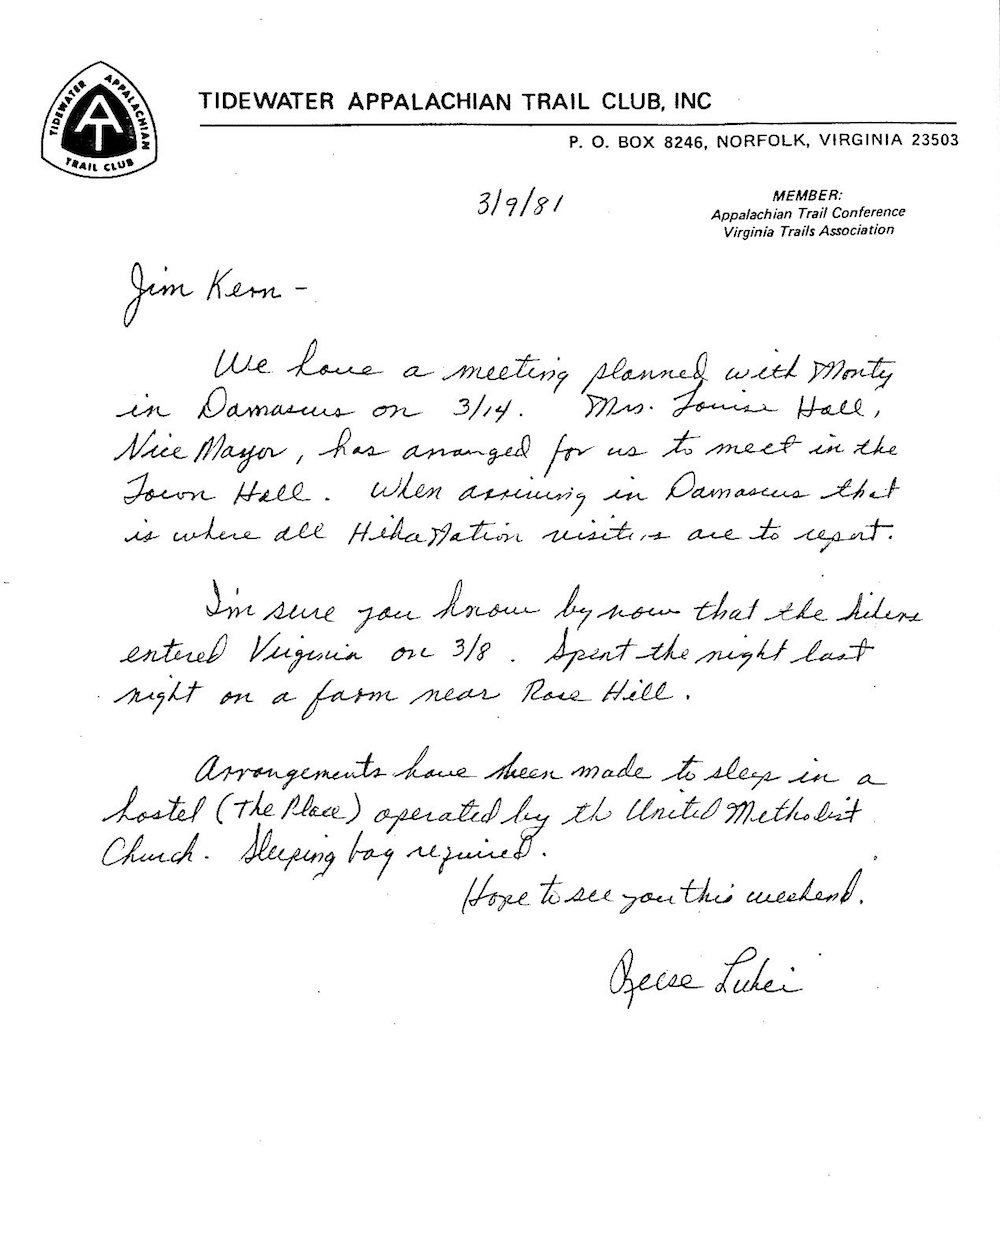 TIDEWATER APPALACHIAN TRAIL CLUB
AT
TIDEWATER APPALACHIAN TRAIL CLUB, INC
P. O. BOX 8246, NORFOLK, VIRGINIA 23503
3/9/81
MEMBER:
Appalachian Trail Conference
Virginia Trails Association
Jim Kern -
We have a meeting planned with Monty
in Damascus on 3/14. Mrs. Louise Hall,
Vice Mayor, has arranged for us to meet in the
Town Hall. When arriving in Damascus that
is where all HikaNation visitors are to report.
I'm sure you know by now that the hikers
entered Virginia on 3/8. Spent the night last
night on a farm near Rose Hill.
Arrangements have been made to sleep in a
hostel (The Place) operated by th United Methodist
Church. Sleeping bag required.
Hope to see you this weekend.
Reese Lukei